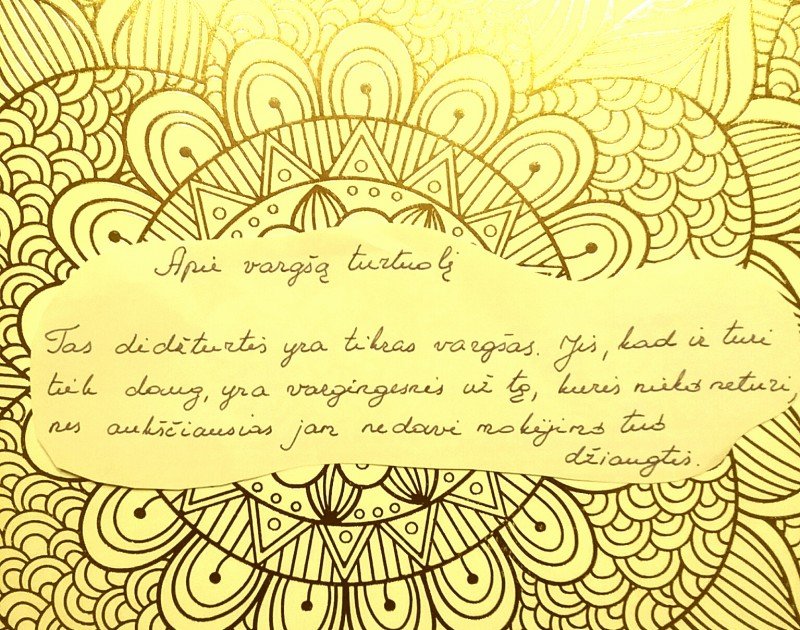 Apie vargšą turtuolį
Tas didžturtis yra tikras vargšas. Jis, kad ir turi
tiek daug, yra vargingesnis už tą, kuris nieko neturi,
nes aukščiausias jam nedavė mokėjimo tuo
džiaugtis.